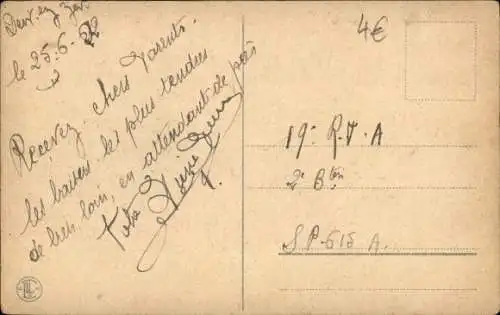 le 25-6-22
Recevez, chers Parents
les baisers les plus tendres
de bien loin, en attendant de près
Votre
4€
19e R.T.A
2e Bton
S P-615 A.